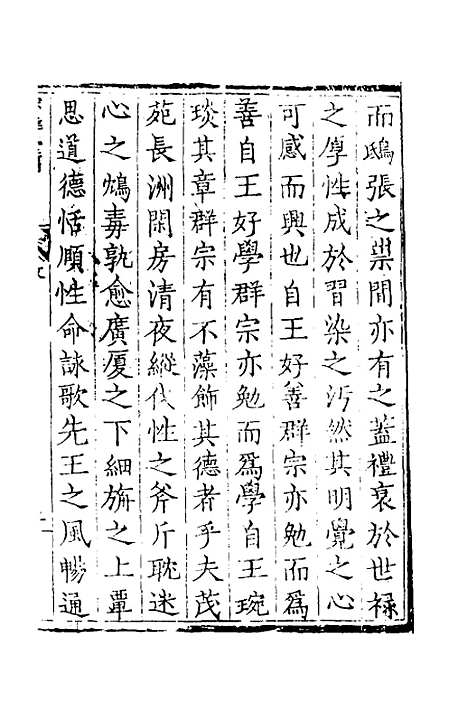 而鴟張之祟間亦有之蓋禮衰於世祿
之厚性成於習染之汚然其明覺之心
可感而興也自王好善群宗亦勉而爲
善自王好學群宗亦勉而爲學自王琬
琰其章群宗有不藻飾其德者乎夫茂
苑長洲閑房清夜縱伐性之斧斤耽迷
心之鴆毒孰愈廣廈之下細旃之上覃
思道德恬頤性命詠歌先王之風暢通